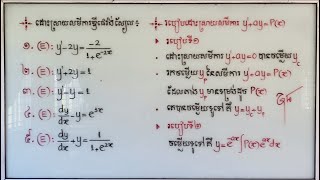 ដោះស្រាយសមីការឌីផេរ៉ង់ស្យែល៖
១. (E): y'-2y = -2/(1+e^{-2x})
២. (E): y'+2y =
៣. (E): y'-y =
៤. (E): dy/dx - y = e^{3x}
៥. (E): dy/dx + y = 1/(1+e^{2x})
* របៀបដោះស្រាយសមីការ y'+ay=P(x)
* របៀបទី១
ដោះស្រាយសមីការ y'+ay=0 បានចម្លើយ y_c
រកចម្លើយ y_p នៃសមីការ y'+ay=P(x)
ដែលមាន y_p មានទម្រង់ដូច P(x)
គេបានចម្លើយទូទៅ គឺ y=y_c+y_p
* របៀបទី២
ចម្លើយទូទៅ គឺ y=e^{-ax}∫P(x)e^{ax}dx